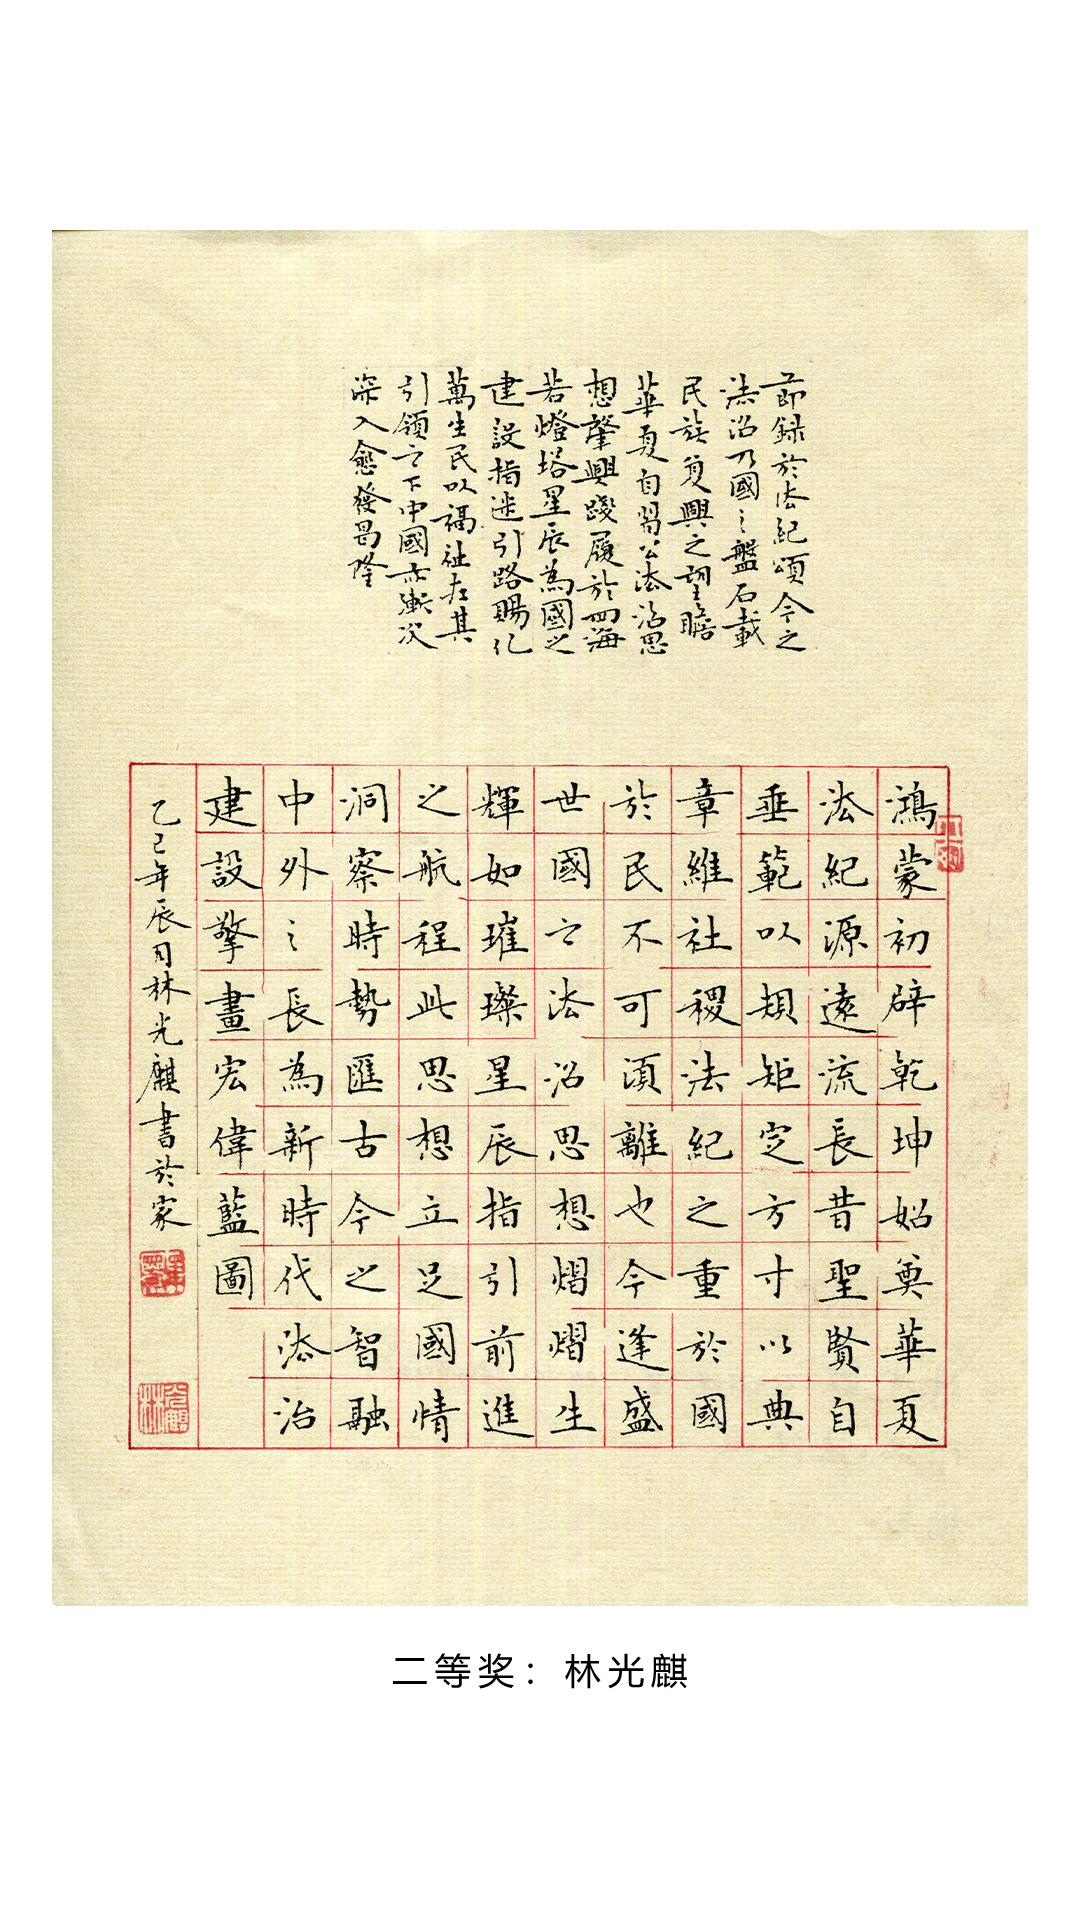 節録於法紀頌今之
法治乃國之盤石載
民族复興之望瞻
華夏自習公法治思
想肇興踐履於四海
若燈塔星辰為國之
建設指迷引路賜化
萬生民以福祉在其
引領之下中國亦漸次
深入愈發昌隆
鴻蒙初辟乾坤始奠華夏
法紀源遠流長昔聖賢自
垂範以規矩定方寸以典
章維社稷法紀之重於國
於民不可須離也今逢盛
世國之法治思想熠熠生
輝如璀璨星辰指引前進
之航程此思想立足國情
洞察時勢匯古今之智融
中外之長為新時代法治
建設擎畫宏偉藍圖
乙巳年辰月林光麒書於家
二等奖：林光麒